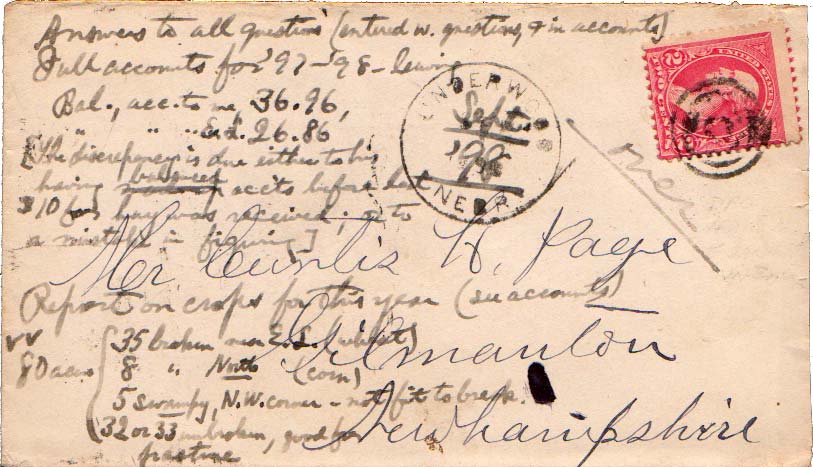 Answers to all questions (entered w. questions, & in accounts)
Full accounts for '97-'98 - leaving
Bal., acc. to me, 36.96,
" " " E.d. 26.86
[the discrepancy is due either to his
having balanced acc'ts before last
$10 for hay was received, or to
a mistake in figuring]
UNDERWOOD
Sept.
1898
NEBR.
UNITED STATES
2
over
Mr Curtis H. Page
Gilmanton
New hampshire
Report on crops for this year (see accounts)
80 acres
35 broken near E. S. (wheat)
8 " North (corn)
5 swampy, N.W. corner - not fit to break.
32 or 33 unbroken, good for
pasture